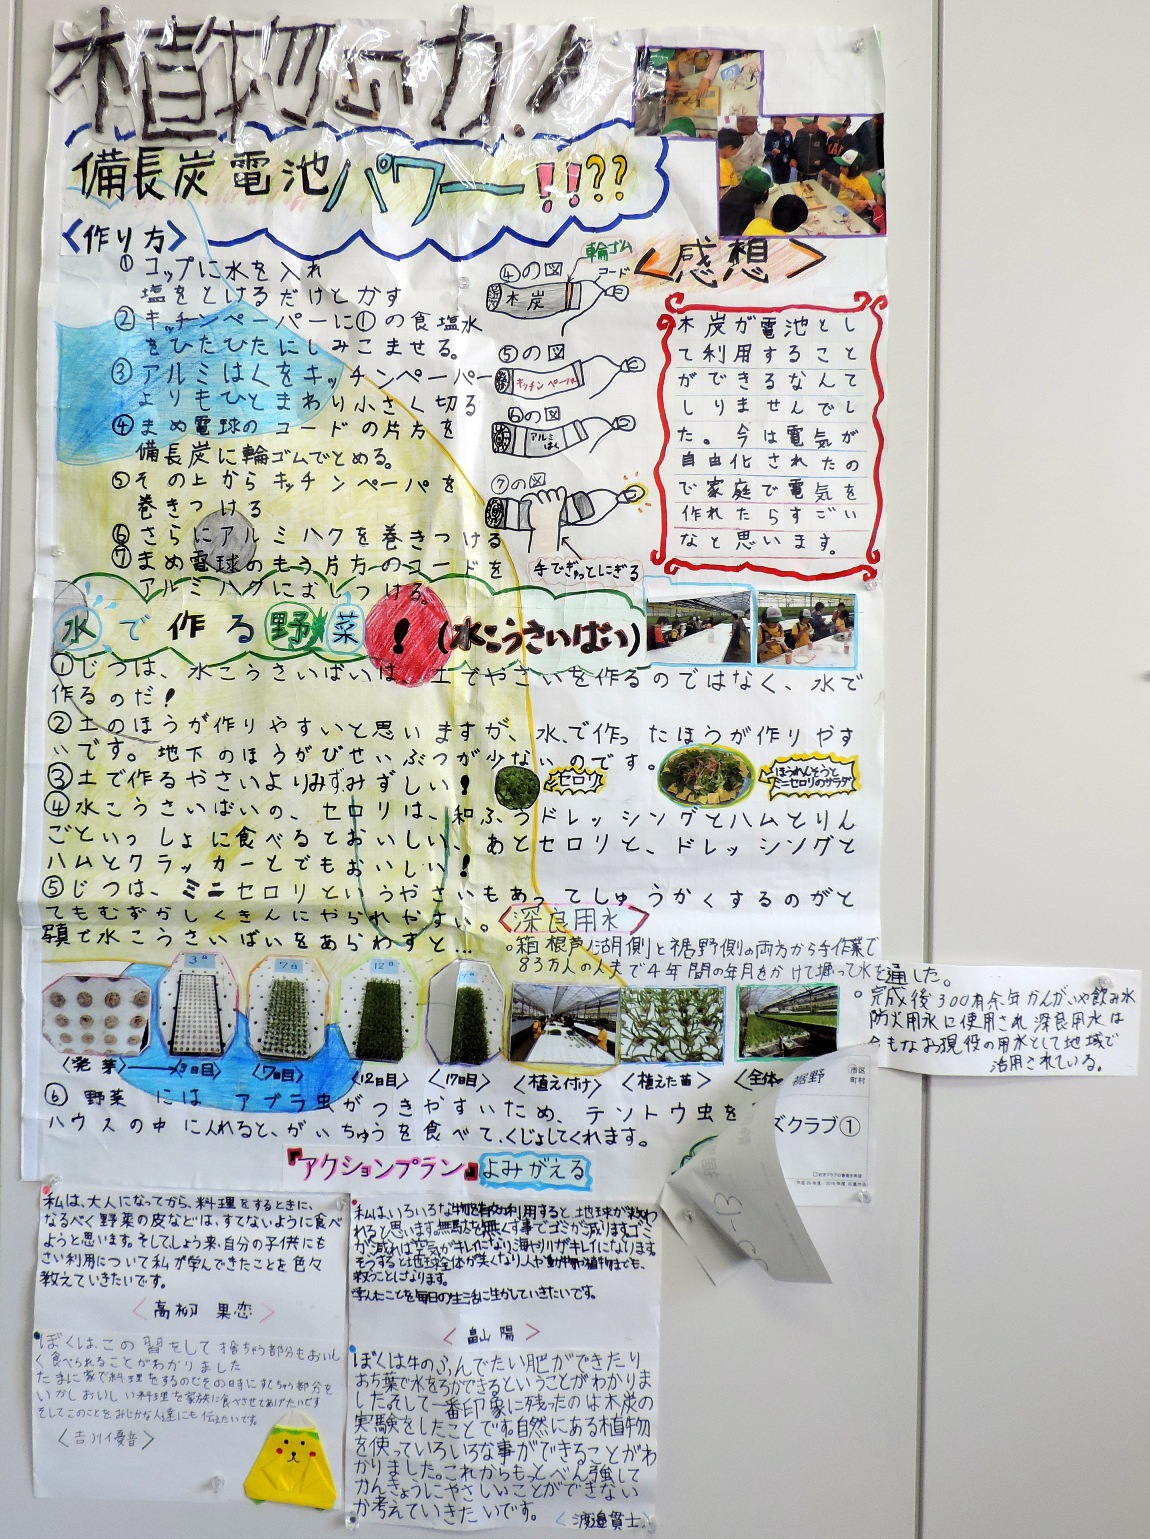 植物の力!!
備長炭電池パワー!!??
<作り方>
①コップに水を入れ
塩をとけるだけとかす
②キッチンペーパーに①の食塩水
をひたひたにしみこませる。
③アルミはくをキッチンペーパー
よりもひとまわり小さく切る
④まめ電球のコードの片方を
備長炭に輪ゴムでとめる。
⑤その上からキッチンペーパを
巻きつける
⑥さらにアルミハクを巻きつける
⑦まめ電球のもう片方のコードを
アルミハクにおしつける。
④の図
輪ゴム
コード
木炭
⑤の図
キッチンペーパー
⑥の図
アルミ
はく
⑦の図
手でぎゅっとにぎる
<感想>
木炭が電池とし
て利用すること
ができるなんて
しりませんでし
た。今は電気が
自由化されたの
で家庭で電気を
作れたらすごい
なと思います。
水で作る野菜!(水こうさいばい)
①じつは、水こうさいばいは、土でやさいを作るのではなく、水で
作るのだ!
②土のほうが作りやすいと思いますが、水で作ったほうが作りやす
いです。地下のほうがびせいぶつが少ないのです。
③土で作るやさいよりみずみずしい!
セロリ
ほうれんそうと
ミニセロリのサラダ
④水こうさいばいの、セロリは、和ふうドレッシングとハムとりん
ごといっしょに食べるとおいしい、あとセロリと、ドレッシングと
ハムとクラッカーとでもおいしい!
⑤じつは、ミニセロリというやさいもあってしゅうかくするのがと
てもむずかしくきんにやられやすい。
写真で水こうさいばいをあらわすと…
深良用水
。箱根芦ノ湖側と裾野側の両方から手作業で
83万人の人夫で4年間の年月をかけて掘って水を通した。
。完成後300有余年かんがいや飲み水
防火用水に使用され深良用水は
今もなお現役の用水として地域で
活用されている。
3日
7日
12日
<発芽>
<3日目>
<7日目>
<12日目>
<17日目>
<植え付け>
<植えた苗>
<全体
⑥野菜にはアブラ虫がつきやすいため、テントウ虫を
ハウスの中に入れると、がいちゅうを食べて、くじょしてくれます。
裾野
市区
町村
ズクラブ①
『アクションプラン』よみがえる
私は、大人になってから、料理をするときに、
なるべく野菜の皮などは、すてないように食べ
ようと思います。そしてしょう来、自分の子供にも
さい利用について私が学んできたことを色々
教えていきたいです。
<高栁 果恋>
ぼくは、この習をして捨ちゃう部分もおいし
く食べられることがわかりました
たまに家で料理をするのでその時にすてちゃう部分を
いかしおいしい料理を家族に食べさせてあげたいです
そしてこのことをみじかな人達にも伝えたいです。
<吉川優音>
私はいろいろな物を有効利用すると地球が救わ
れると思います。無駄を無くす事でゴミが減ります。ゴミ
が減れば空気がキレイになり海や川がキレイになります
そうすると地球全体が美くなり人や動物や植物までも、
救うことになります。
学んだことを毎日の生活に生かしていきたいです。
<畠山 陽>
ぼくは牛のふんでたい肥ができたり
おち葉で水をろかできるということがわかりま
した。そして一番印象に残ったのは木炭の
実験をしたことです。自然にある植物
を使っていろいろな事ができることがわ
かりました。これからもっとべん強して
かんきょうにやさしいことができない
か考えていきたいです。
<渡邉貫士>